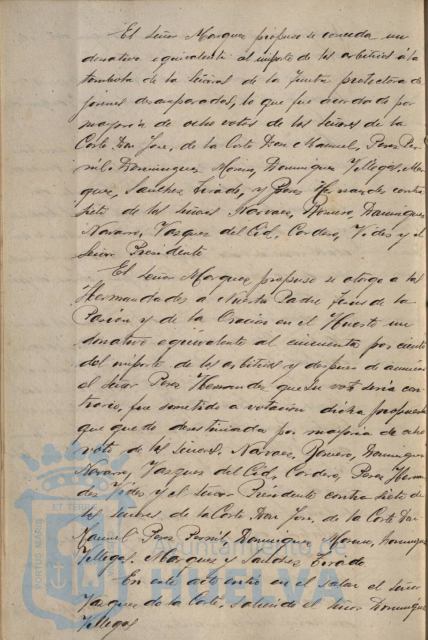 El señor Marquez propuso se conceda un
donativo equivalente al importe de los arbitrios á la
tombola de la señoras de la Junta protectora de
jóvenes desamparados, lo que fue acordado por
mayoria de ocho votos de los señores de la
Corte Don Jose, de la Corte Don Manuel, Perez Per-
nil, Dominguez Moreno, Dominguez Villegas, Mar-
quez, Sanchez Tirado, y Perez Hernandez contra
siete de los señores Narvaez, Romero, Dominguez
Navarro, Vazquez del Cid, Cordero, Vides y el
señor Presidente
El señor Marquez propuso se otorgo a las
Hermandades de Nuestro Padre Jesus de la
Pasión y de la Oración en el Huerto un
donativo equivalente al cincuenta por ciento
del importe de los arbitrios y despues de anunciar
el señor Perez Hernandez que su voto seria con-
trario, fue sometido a votación dicha propuesta
que quedo desestimada por mayoria de ocho
votos de los señores, Narvaez, Romero, Dominguez
Navarro, Vazquez del Cid, Cordero, Perez Hernan-
dez, Vides y el señor Presidente contra siete de
los señores de la Corte Don Jose, de la Corte Don
Manuel Perez Pernil, Dominguez Moreno, Dominguez
Villegas, Marquez y Sanchez Tirado
En este acto entro en el salon el señor
Vazquez de la Corte, saliendo el señor Dominguez
Villegas
PORTUS MARIS
ET TERRÆ
Ayuntamiento de
HUELVA